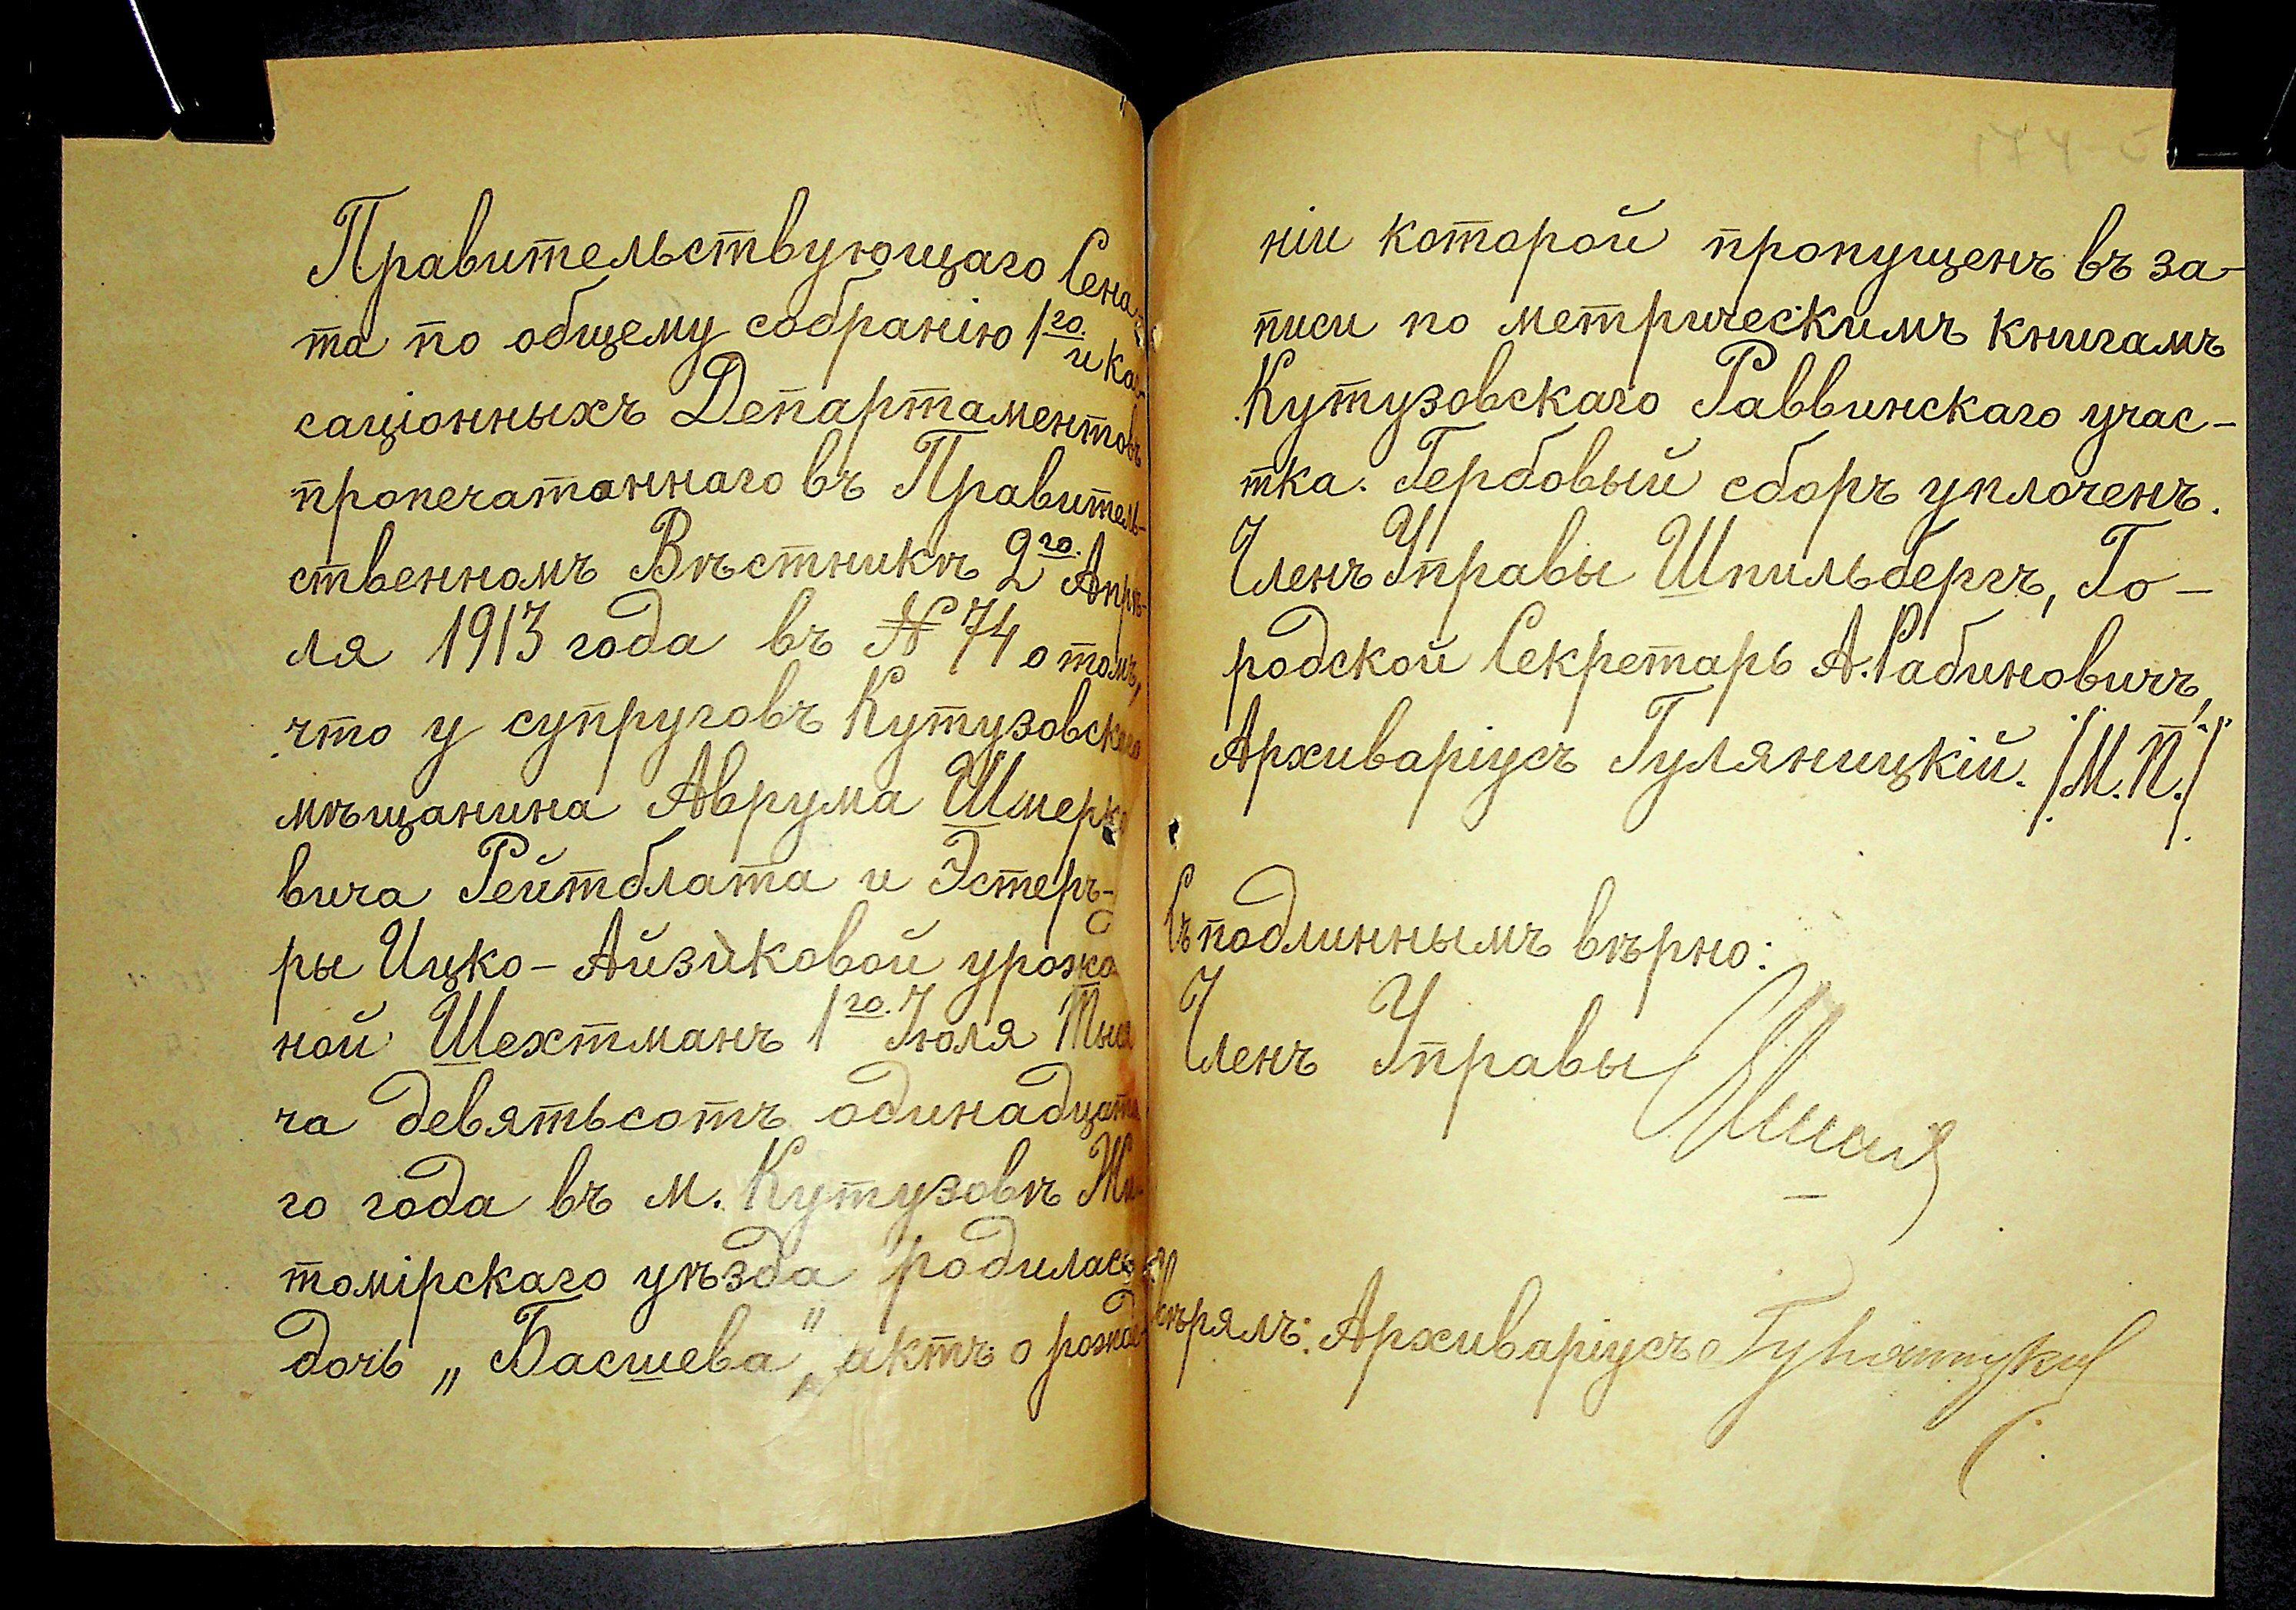 Правительствующаго Сена-
та по общему собранію 1го. и кас-
саціонныхъ Департаментовъ
пропечатаннаго въ Правитель-
ственномъ Вѣстникѣ 2го. Апрѣ-
ля 1913 года въ № 74 о томъ,
что у супруговъ Кутузовскаго
мѣщанина Аврума Шмерко
вича Рейтблата и Эстеръ-
ры Ицко-Айзиковой урожд
ной Шехтманъ 1го. Іюля Тыся
ча девятьсотъ одинадцата
го года въ м. Кутузовѣ Жи-
томірскаго уѣзда родилась
дочь „Басшева" актъ о рожде-
ніи которой пропущенъ въ за-
писи по метрическимъ книгамъ
Кутузовскаго Раввинскаго учас-
тка. Гербовый сборъ уплоченъ.
Членъ Управы Шпильбергъ, Го-
родской Секретарь А. Рабиновичъ,
Архиваріусъ Гуляницкій. /М.П./
Съ подлиннымъ вѣрно:
Членъ Управы
вѣрялъ: Архиваріусъ Гуляницкій